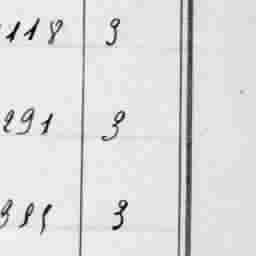 118 3
291 3
3